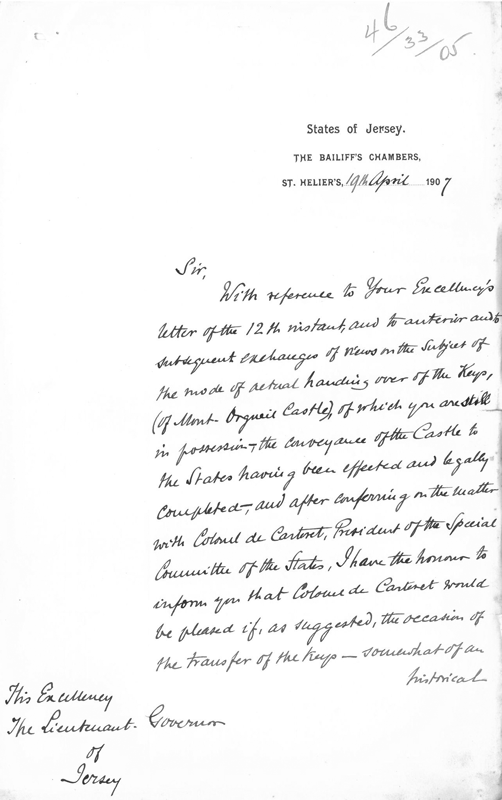 46/33/05
States of Jersey.
THE BAILIFF'S CHAMBERS,
ST. HELIER'S, 19th April 1907
Sir,
With reference to Your Excellency's
letter of the 12th instant, and to anterior and to
subsequent exchanges of views on the subject of
the mode of actual handing over of the Keys,
(of Mont Orgueil Castle), of which you are still
in possession, - the conveyance of the Castle to
the States having been effected and legally
completed -, and after conferring on the matter
with Colonel de Carteret, President of the Special
Committee of the States, I have the honour to
inform you that Colonel de Carteret would
be pleased if, as suggested, the occasion of
the transfer of the Keys — somewhat of an
historical
His Excellency
The Lieutenant-Governor
of
Jersey